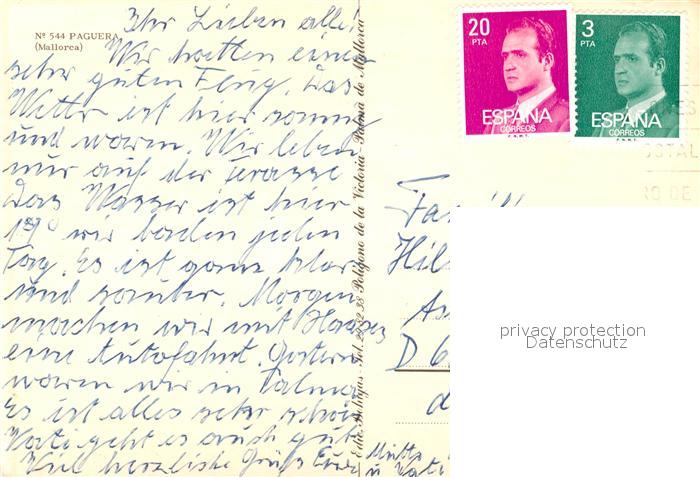 Nº 544 PAGUERA
(Mallorca)
Ihr Lieben alle!
Wir hatten einen
sehr guten Flug. Das
Wetter ist hier sonnig
und warm. Wir leben
nur auf der Terasse
Das Wasser ist hier
19° wir baden jeden
Tag. Es ist ganz klar
und sauber. Morgen
machen wir mit
eine Autofahrt. Gestern
waren wir in Palma
Es ist alles sehr schön
Vati geht es auch gut
Viel herzliche Grüße Eure Mutti
u Vati
Palma de Mallorca
Polígono de la Victoria
20
PTA
ESPAÑA
CORREOS
F.N.M.T.
3
PTA
ESPAÑA
CORREOS
F.N.M.T.
Hil
D 6
privacy protection
Datenschutz